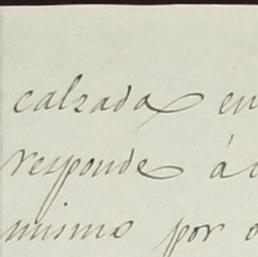 calzada en
responde á
mismo por